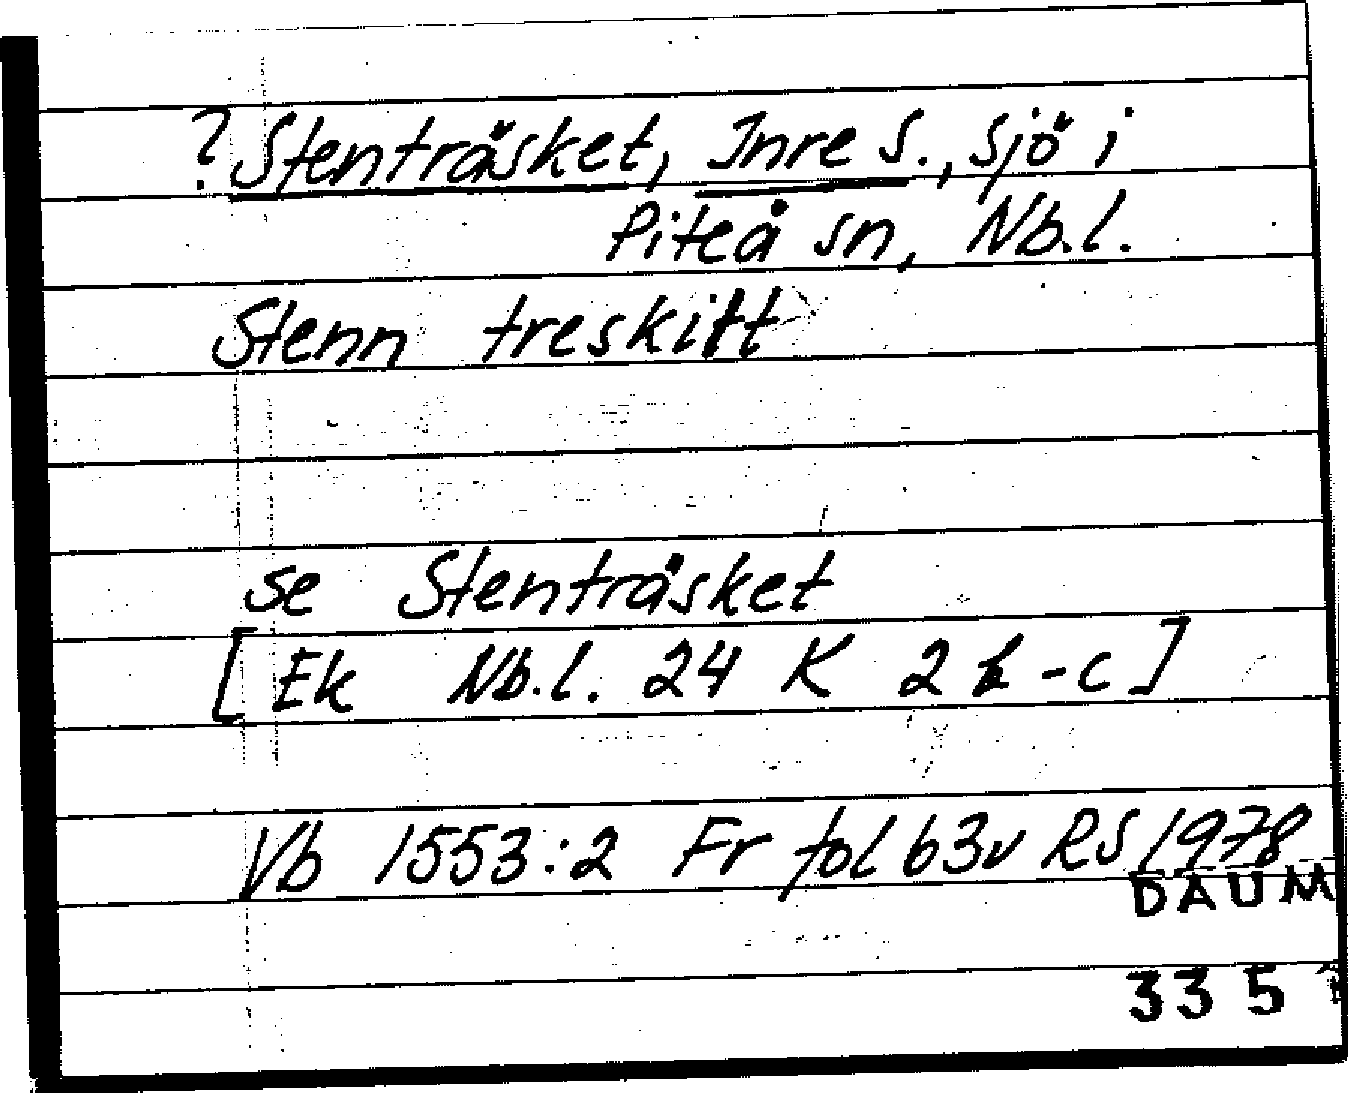 ? Stenträsket, Inre S., sjö i
Piteå sn, Nb.l.
Stenn treskitt
se Stenträsket
[Ek Nb.l. 24 K 2 b-c]
Vb 1553:2 Fr fol 63v RS 1978
DAUM
335